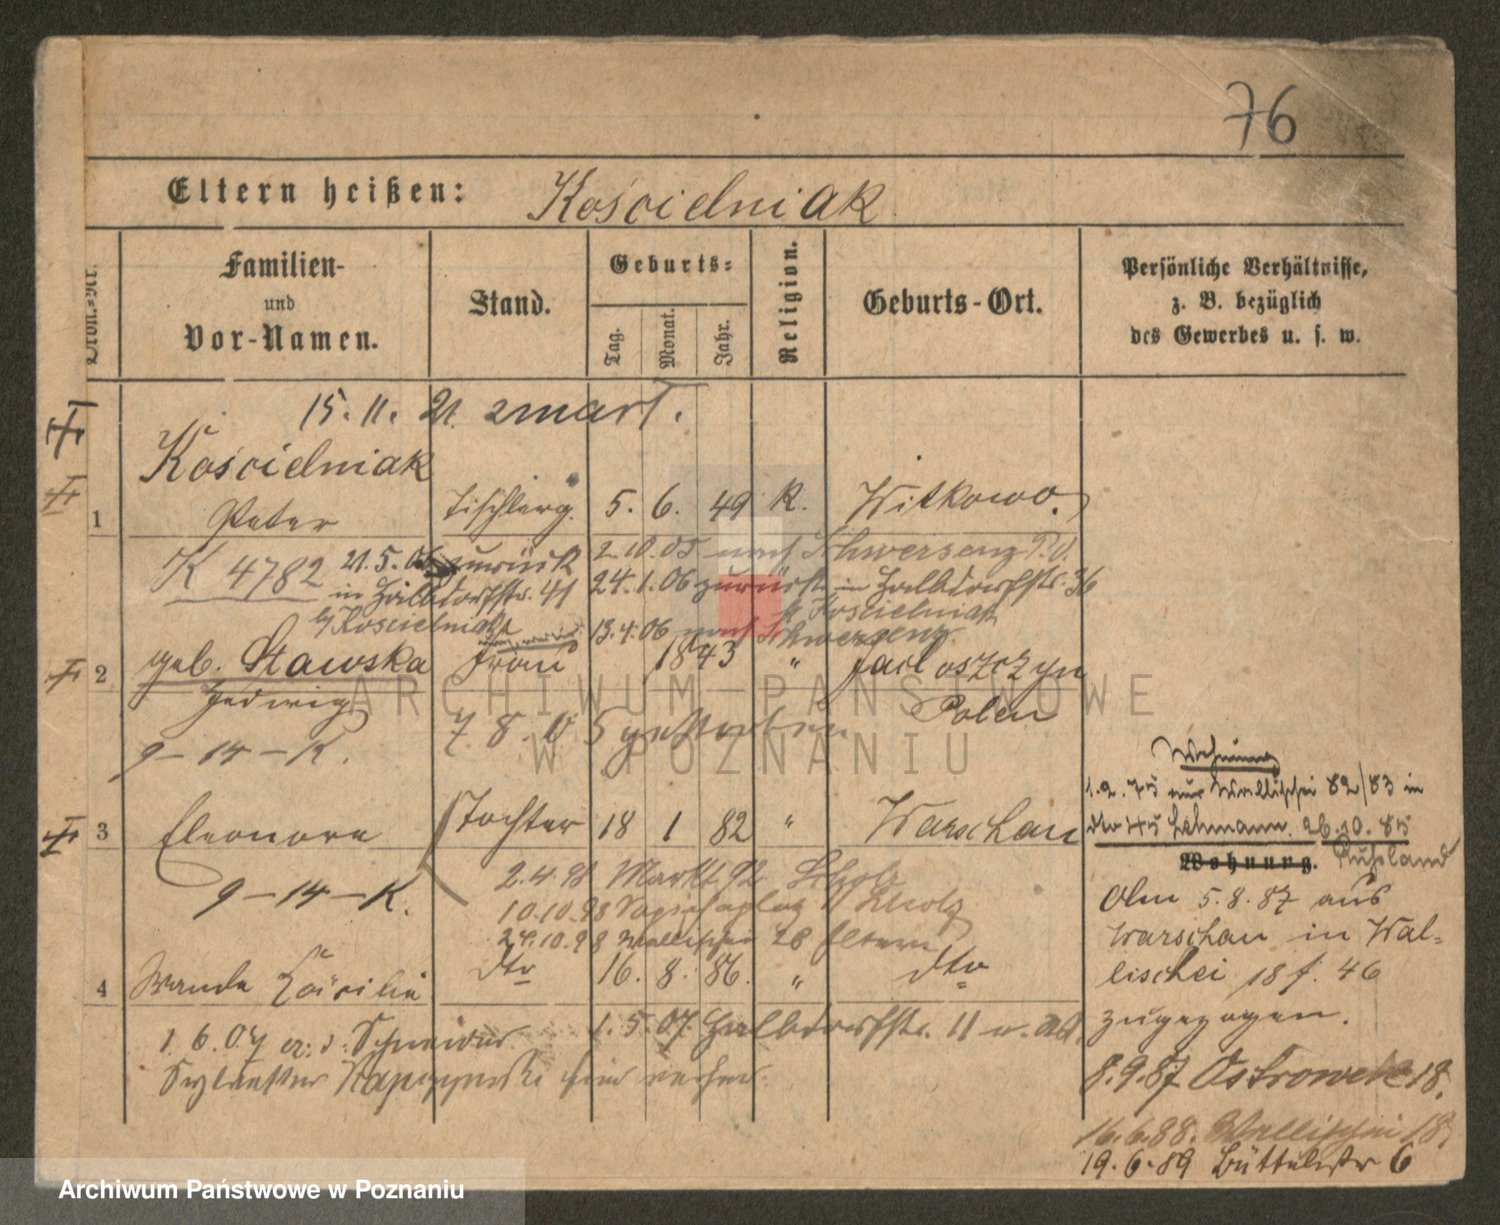 76
Eltern heißen: Kościelniak
Ordn.-Nr.
Familien- und Vor-Namen.
Stand.
Geburts-
Tag.
Monat.
Jahr.
Religion.
Geburts-Ort.
Persönliche Verhältnisse,
z. B. bezüglich
des Gewerbes u. s. w.
15. 11. 21. zmarł.
Kościelniak
1 Peter Tischlerg. 5. 6. 49 K. Witkowo.
K 4782 21.5.06 zurück 2.10.05 nach Schwersenz P.O.
in Halbdorfstr. 41 24.1.06 zurück in Halbdorfstr. 36
b/ Kościelniak
Kościelniak
13.4.06 nach Schwersenz.
2 geb. Stawska Frau 1843 "
Hedwig Polen
7. 8. 05 gestorben
9 - 14 - K.
3 Eleonore Tochter 18 1 82 " Warschau
9 - 14 - K.
2.4.98 Markt 92
10.10.98 Sapiehaplatz
24.10.98 Wallischei 28 Eltern
4 Wanda Cäcilie dto 16. 8. 86. " dto
1.5.07. Halbdorfstr. 11
1.6.07
Sylvester Kapczynski
Wohnung
1.2.75 Wallischei 82/83 in
dto 45 Lehmann. 26.10.85
Rußland
Wohnung.
Am 5.8.87 aus
Warschau in Wal-
lischei 18 f. 46
zugezogen.
8.9.87 Ostrowek 18.
16.6.88. Wallischei 18.
19.6.89 Büttelstr 6
ARCHIWUM PAŃSTWOWE
W POZNANIU
Archiwum Państwowe w Poznaniu